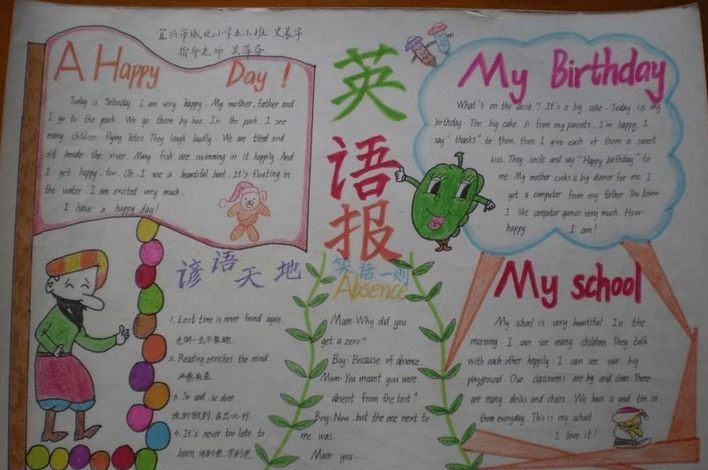 宜兴市城北小学五
指导老师
A Happy Day!
Today is Saturday. I am very happy. My mother, father and
I go to the park. We go there by bus. In the park, I see
many children flying kites. They laugh loudly. We are tired and
sit beside the river. Many fish are swimming in it happily. And
I get happy, too. Oh, I see a beautiful boat. It's floating in
the water. I am excited very much.
I have a happy day!
英语报
My Birthday
What's on the desk? It's a big cake. Today is my
birthday. The big cake is from my parents, I'm happy. I
say "thanks" to them, then I give each of them a sweet
kiss. They smile and say "Happy birthday" to
me. My mother cooks a big dinner for me. I
get a computer from my father. You know
I like computer games very much. How
happy I am!
谚语天地
1. Lost time is never found again.
2. Reading enriches the mind.
开卷有益
3. So said, so done.
说到做到,
4. It's never too late to
learn. 活到老,学到老
笑话一则
Absence
Mum: Why did you
get a zero?
Boy: Because of absence.
Mum: You meant you were
absent from the test?
Boy: Now, but the one next to
me was.
Mum: you....
My school
My school is very beautiful. In the
morning, I can see many children. They talk
with each other happily. I can see our big
playground. Our classrooms are big and clean. There
are many desks and chairs. We have a good time in
them everyday. This is my school.
I love it!